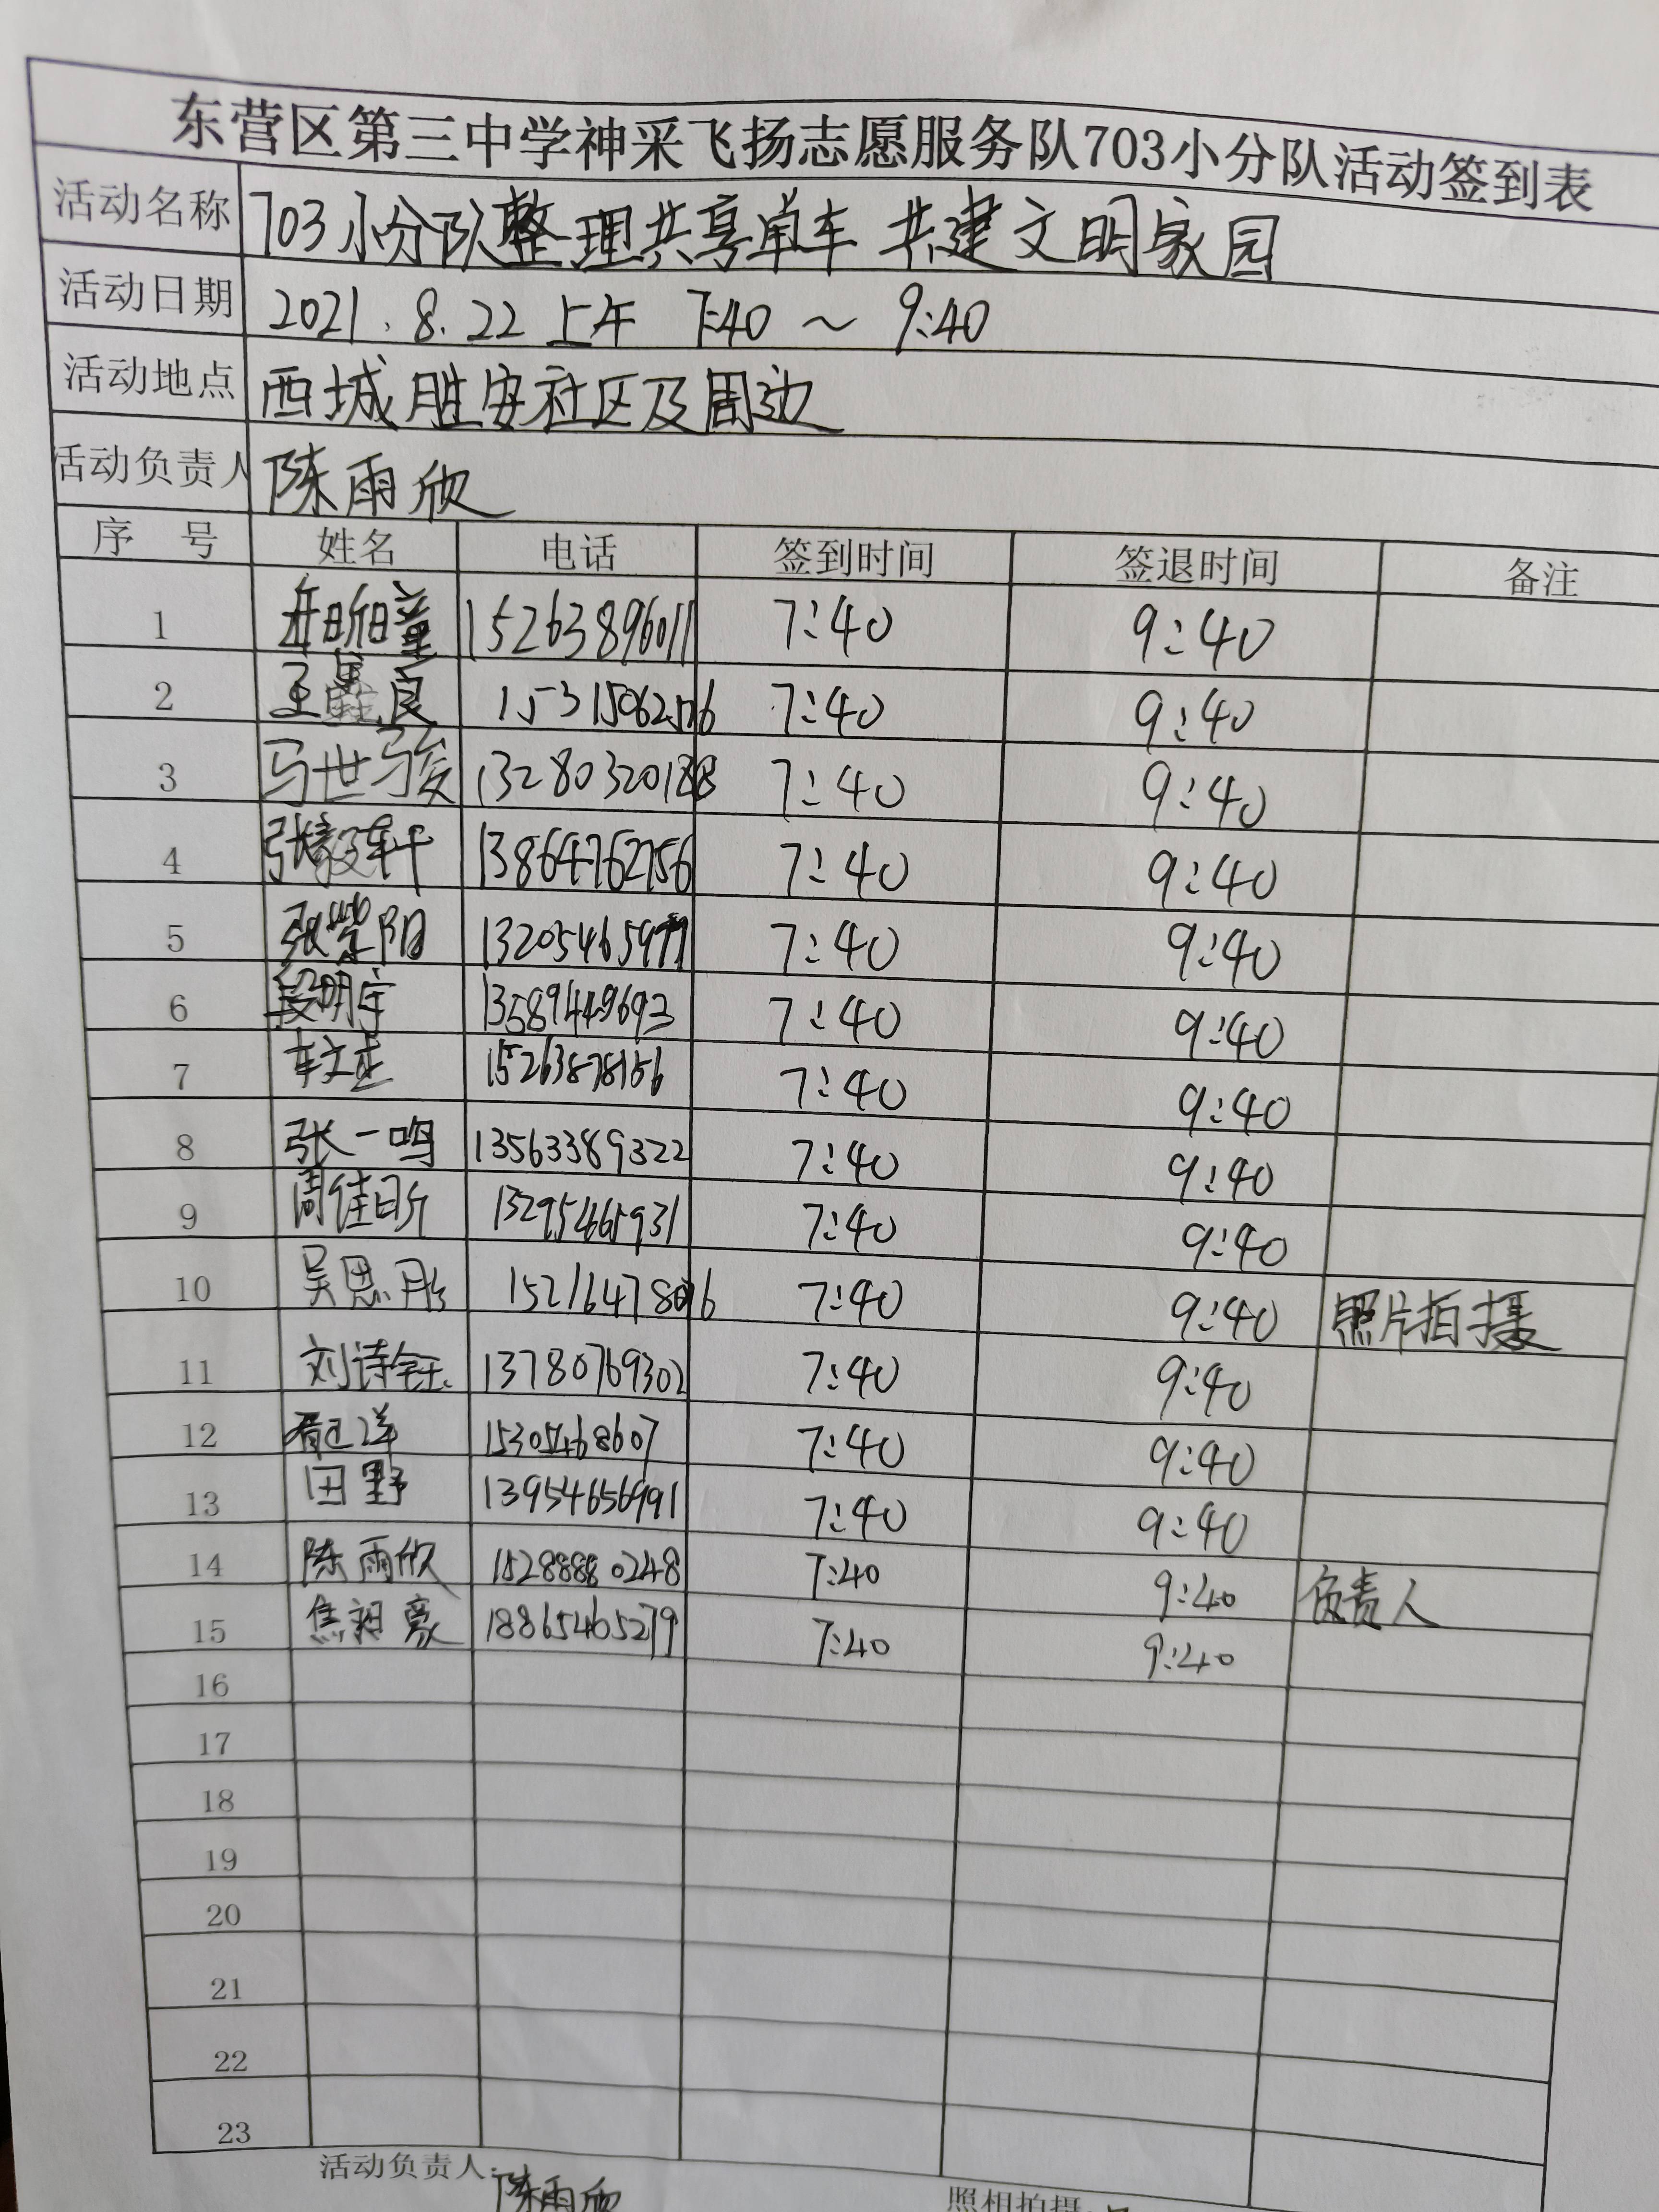 东营区第三中学神采飞扬志愿服务队703小分队活动签到表
活动名称 703小分队整理共享单车 共建文明家园
活动日期 2021.8.22 上午 7:40～9:40
活动地点 西城胜安社区及周边
活动负责人 陈雨欣
序 号 姓名 电话 签到时间 签退时间 备注
1 15263896011 7:40 9:40
2 7:40 9:40
3 马世骏 13280320188 7:40 9:40
4 张毅轩 13864762756 7:40 9:40
5 张紫阳 7:40 9:40
6 段明宇 13589449693 7:40 9:40
7 15263878156 7:40 9:40
8 张一鸣 13563389322 7:40 9:40
9 周佳昕 13295465931 7:40 9:40
10 吴恩彤 7:40 9:40 照片拍摄
11 刘诗钰 13780769302 7:40 9:40
12 15305468607 7:40 9:40
13 田野 13954656991 7:40 9:40
14 陈雨欣 15288880248 7:40 9:40 负责人
15 18865465279 7:40 9:40
16
17
18
19
20
21
22
23
活动负责人: 陈雨欣 照相拍摄: